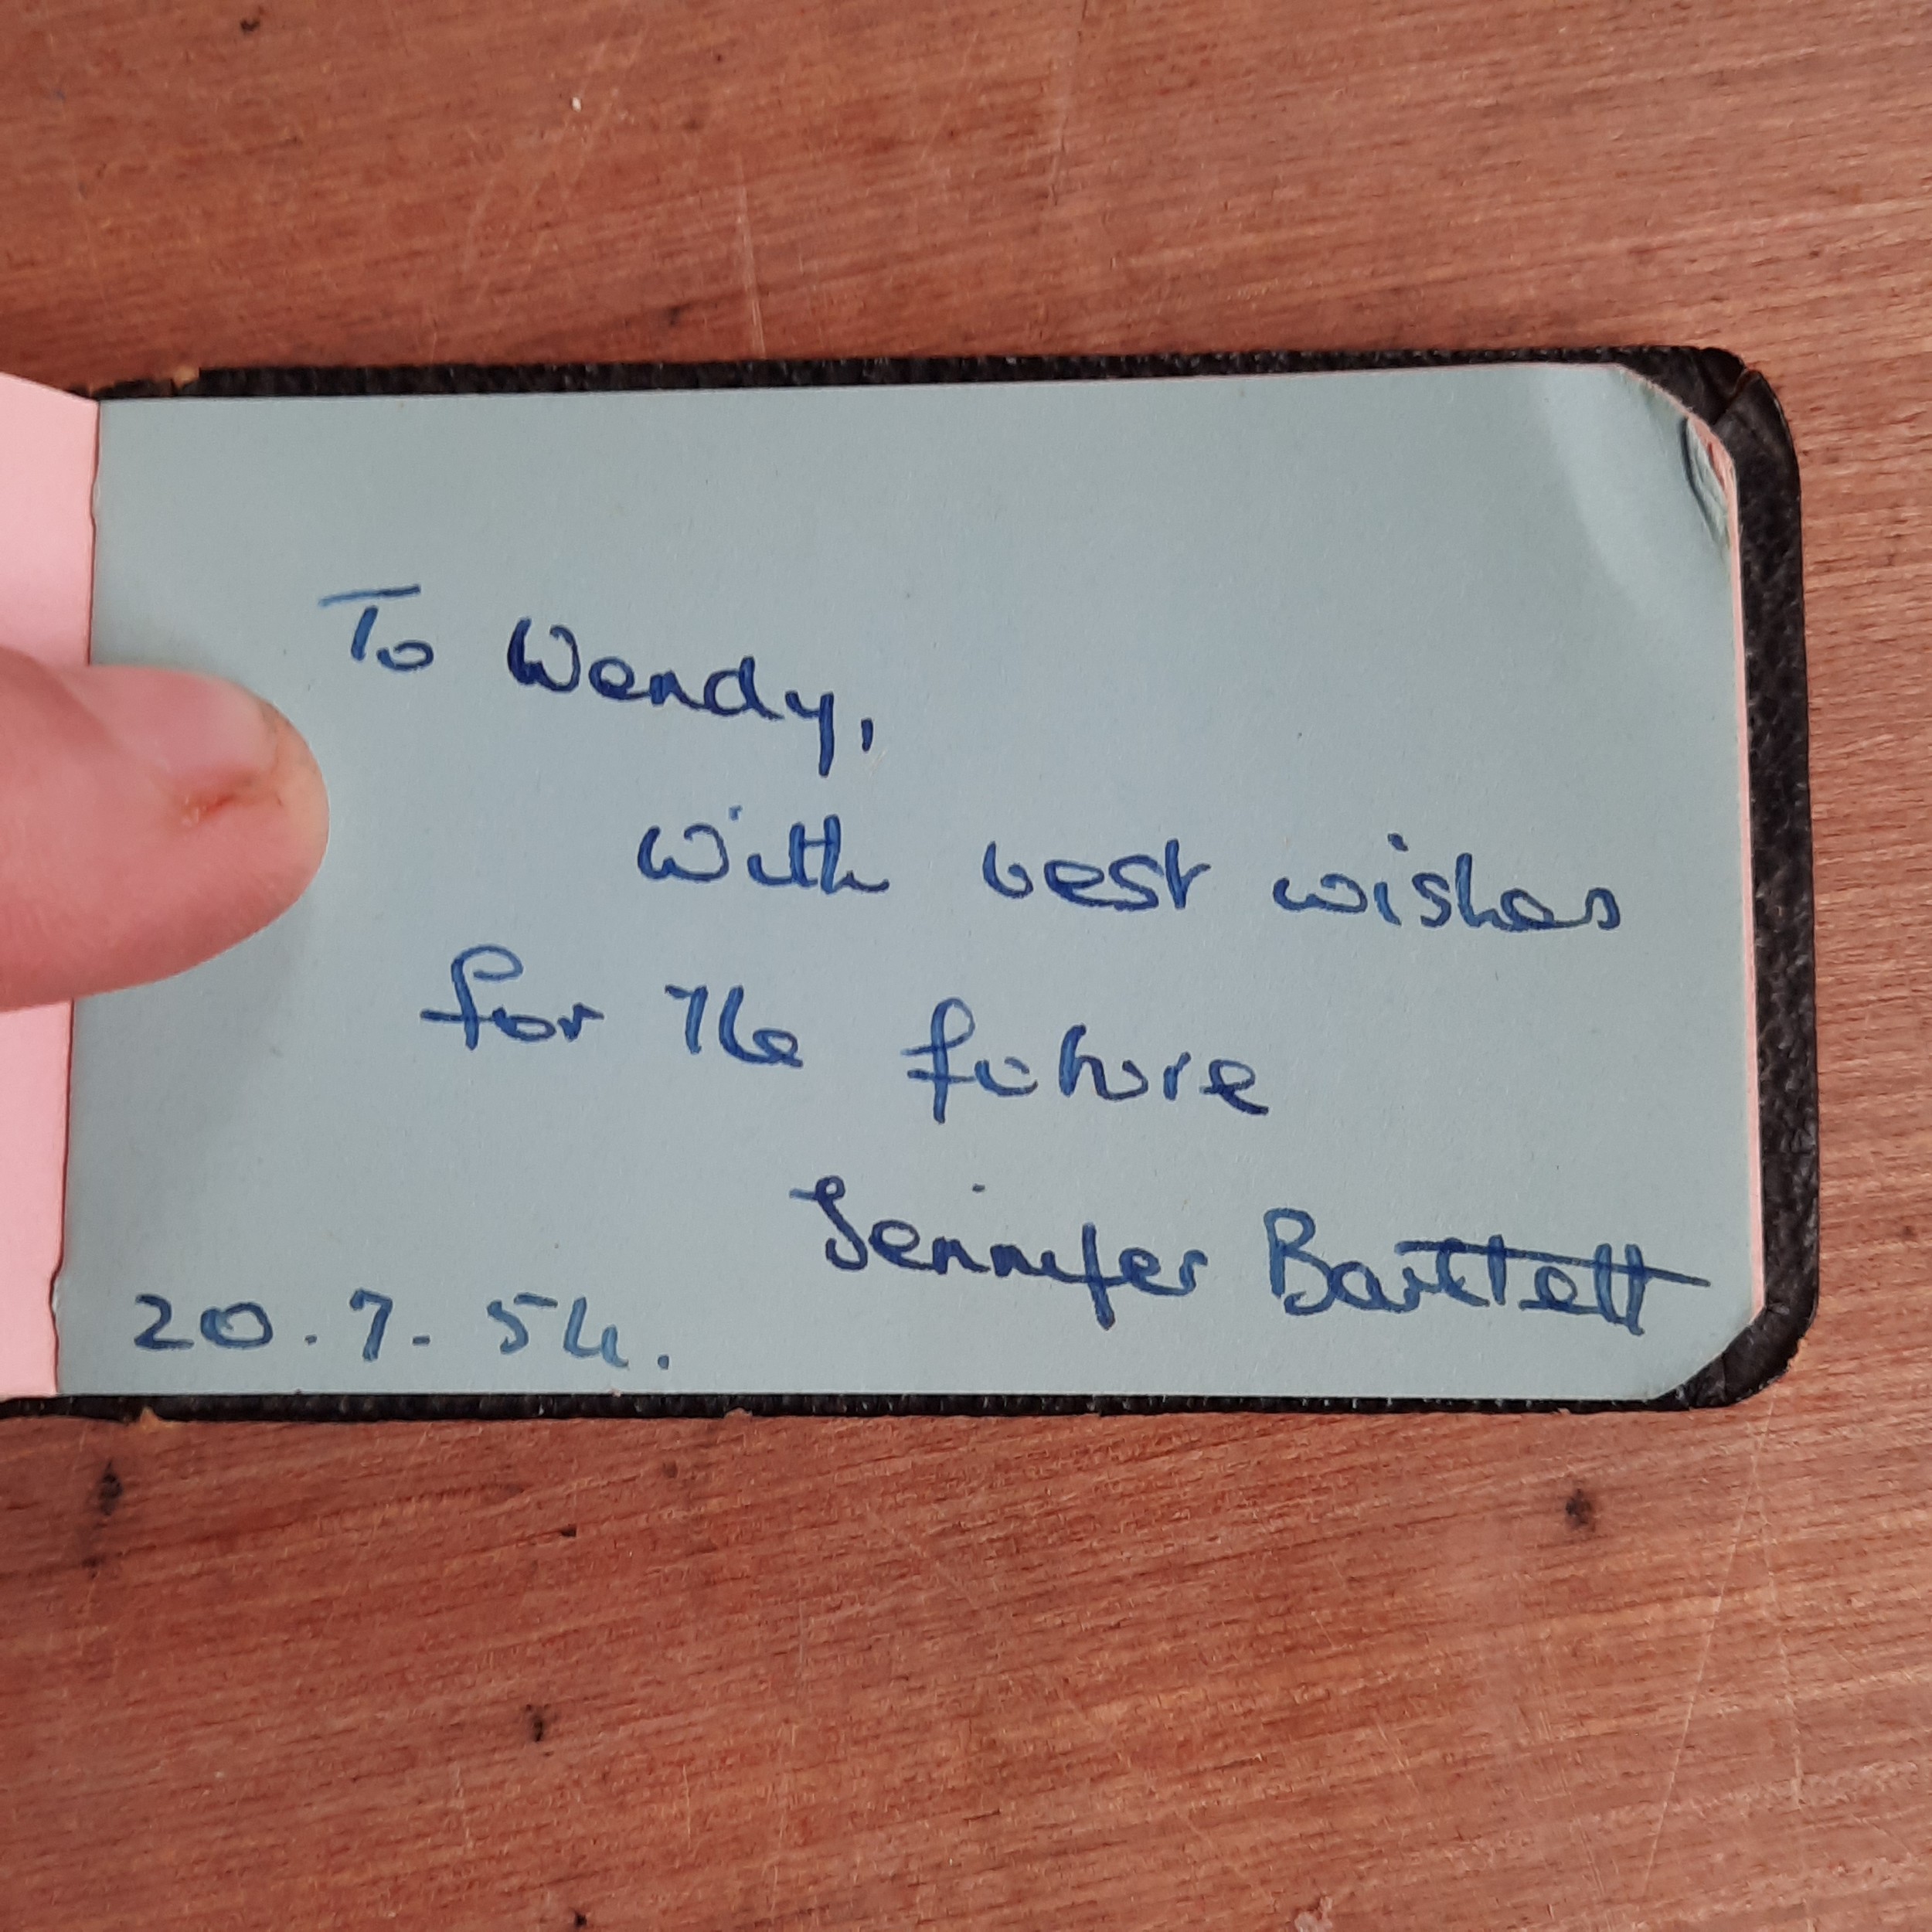 To Wendy,
with best wishes
for the future
Jennifer Bartlett
20.7.54.